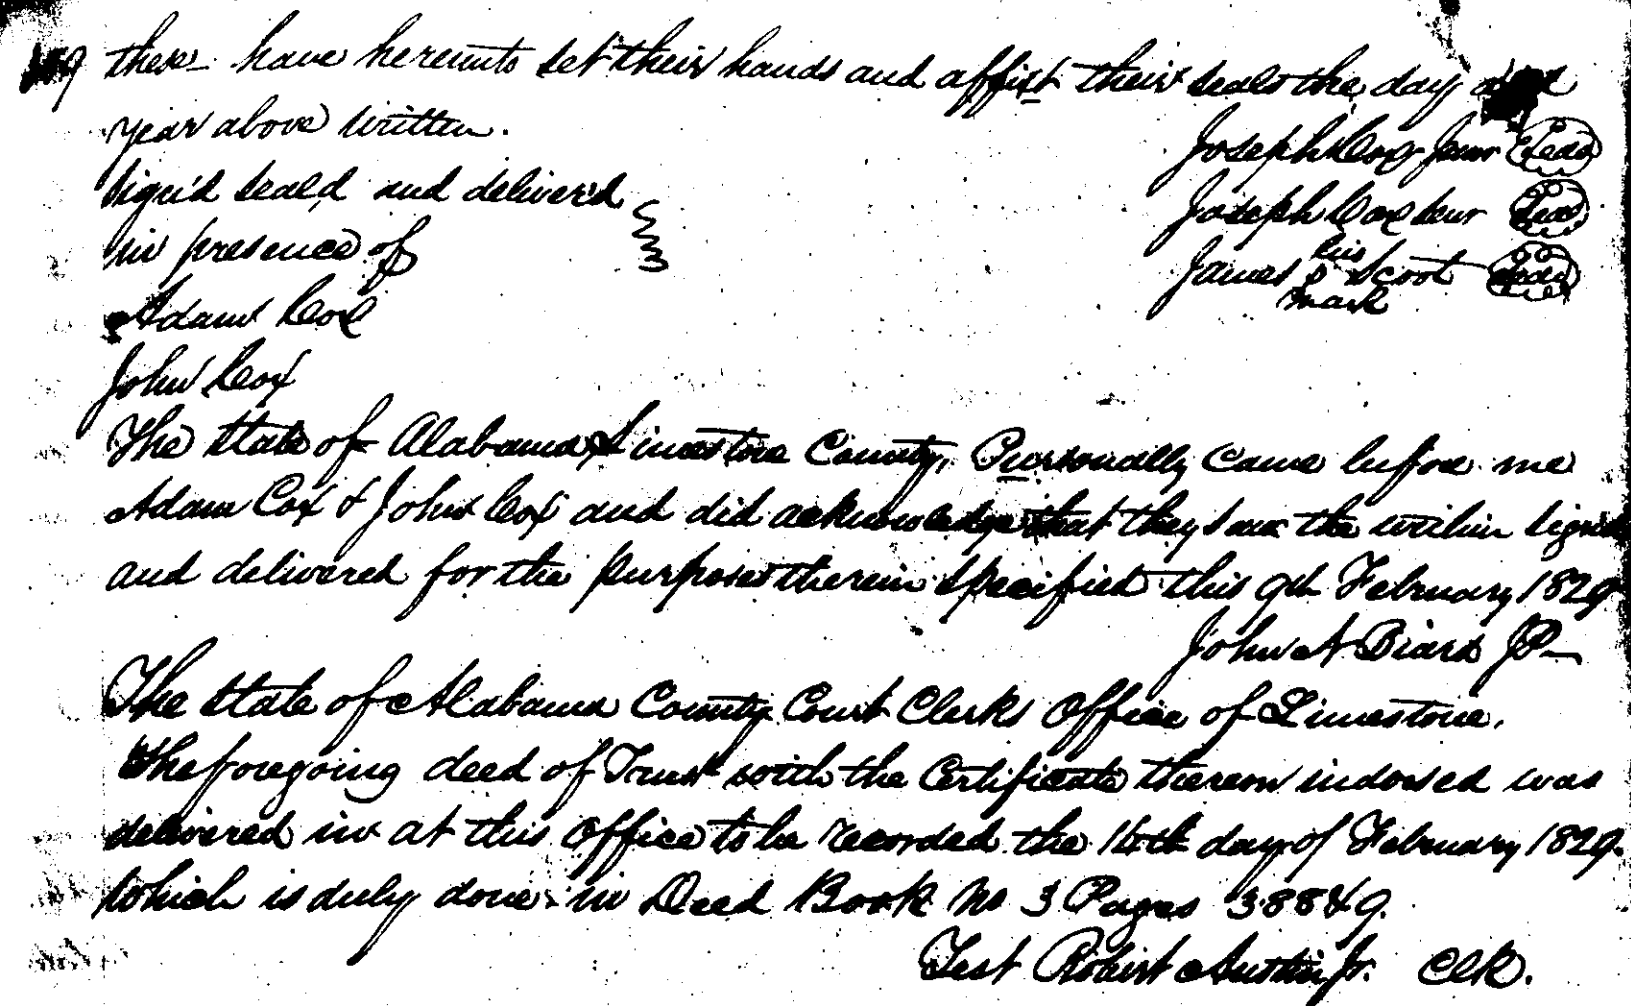 389 these have hereunto set their hands and affixt their seals the day and
year above written. Joseph Cox Junr Seal
Sign'd seal'd and deliver'd Joseph Cox Senr Seal
in presence of James his mark Scoot Seal
Adam Cox
John Cox
The State of Alabama Limestone County, Personally came before me
Adam Cox & John Cox and did acknowledge that they saw the within signed
and delivered for the purposes therein specified this 9th February 1829
John N Biard JP
The State of Alabama County Court Clerks Office of Limestone.
The foregoing deed of Trust with the Certificate thereon indorsed was
delivered in at this office to be recorded the 14th day of February 1829.
Which is duly done in Deed Book No 3 Pages 388 & 9.
Test Robert Austin Jr. Clk.